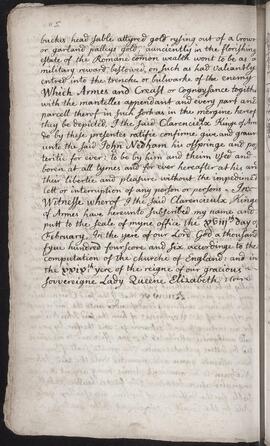 buckes head sable attyred gold rysing out of a Crown
or garland pallysy gold, aunciently in the florishing
state of the Romane comon wealth wont to be as a
military reward bestowed, on such as had valiantly
entred into the trenche or bulwarke of the enemy
Which Armes and Creast or Cognoysance togither
with the mantelles appendant and every part and
parcell therof in such sort as in the margine herof
they be depicted. I the said Clarencieulx Kinge of Ar
do by these presentes ratifie confirme give and graun
unto the said John Nedham his ofspringe and pos
teritie for ever: to be by him and them used and
born at all tymes and for ever hereafter at his and
their libertie and pleasure without the impediment
lett or interruption of any person or persons. In
Witnesse wherof I the said Clarencieulx Kinge
of Armes have hereunto subscribed my name and
putt to the seale of myne office the day of
February. In the yere of our Lord God a thousand
fyve hundred fourscore and six according to the
computation of the churche of England: and in
the yere of the reigne of our gracious
Sovvereigne Lady Queene Elizabeth.